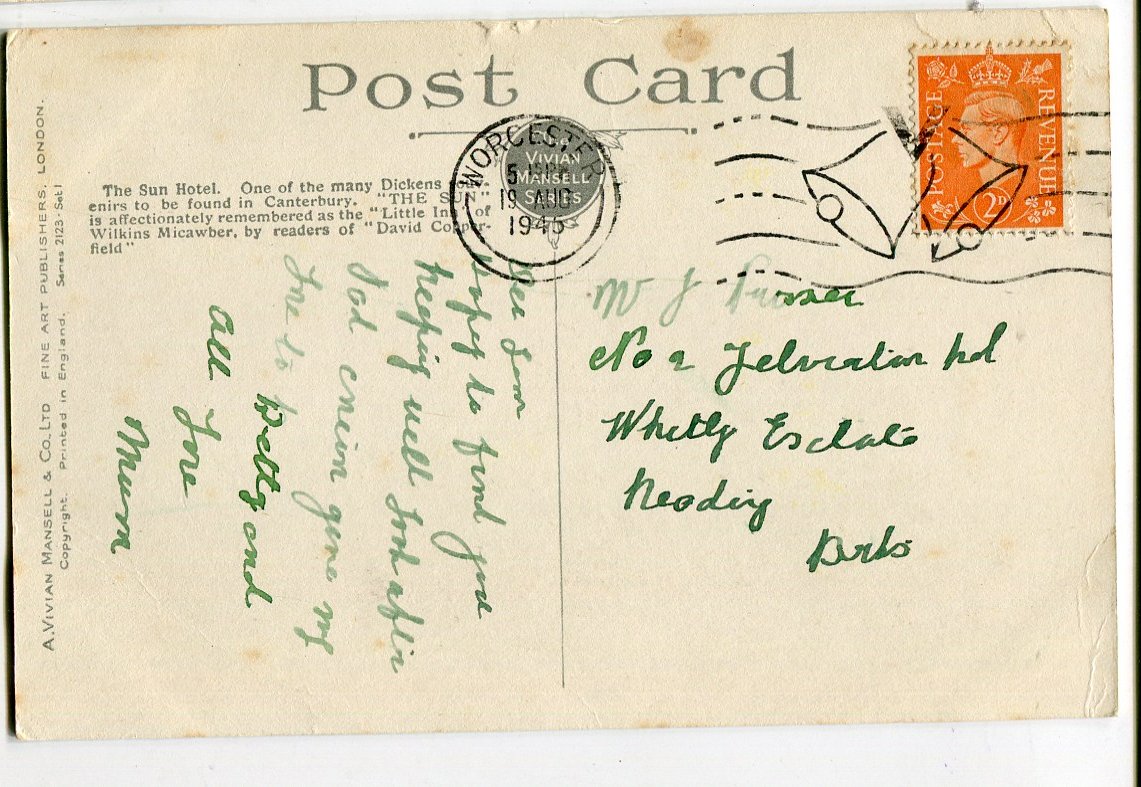 Post Card
POSTAGE
REVENUE
2D
WORCESTER
5
19 AUG
1945
VIVIAN
MANSELL
SERIES
The Sun Hotel. One of the many Dickens
enirs to be found in Canterbury. "THE SUN"
is affectionately remembered as the "Little Inn" of
Wilkins Micawber, by readers of "David Copper-
field"
A. VIVIAN MANSELL & CO. LTD FINE ART PUBLISHERS, LONDON.
Copyright. Printed in England. Series 2123 - Set 1
hopes to find you
keeping well look after
Dad give my
love to
Betty and
all
love
Mum
Mr J
No 2
Whitly Estate
Reading
Berks